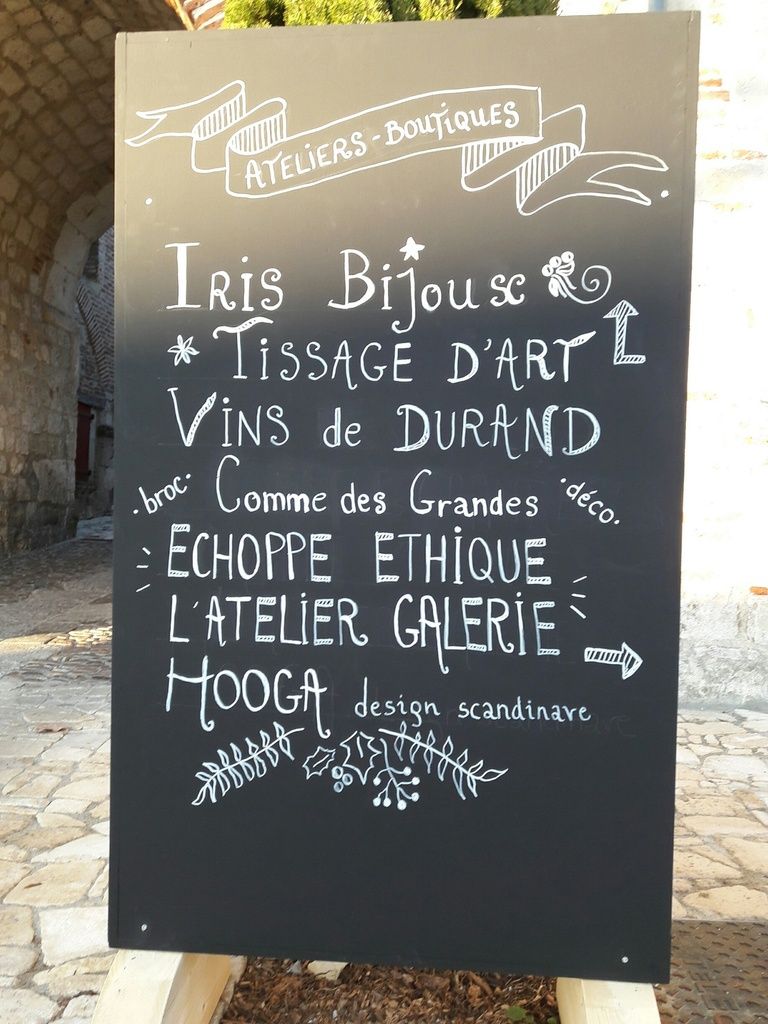 ATELIERS-BOUTIQUES
IRIS Bijoux
TISSAGE D'ART
VINS de DURAND
.broc. Comme des Grandes .déco.
ECHOPPE ETHIQUE
L'ATELIER GALERIE
HOOGA design scandinave